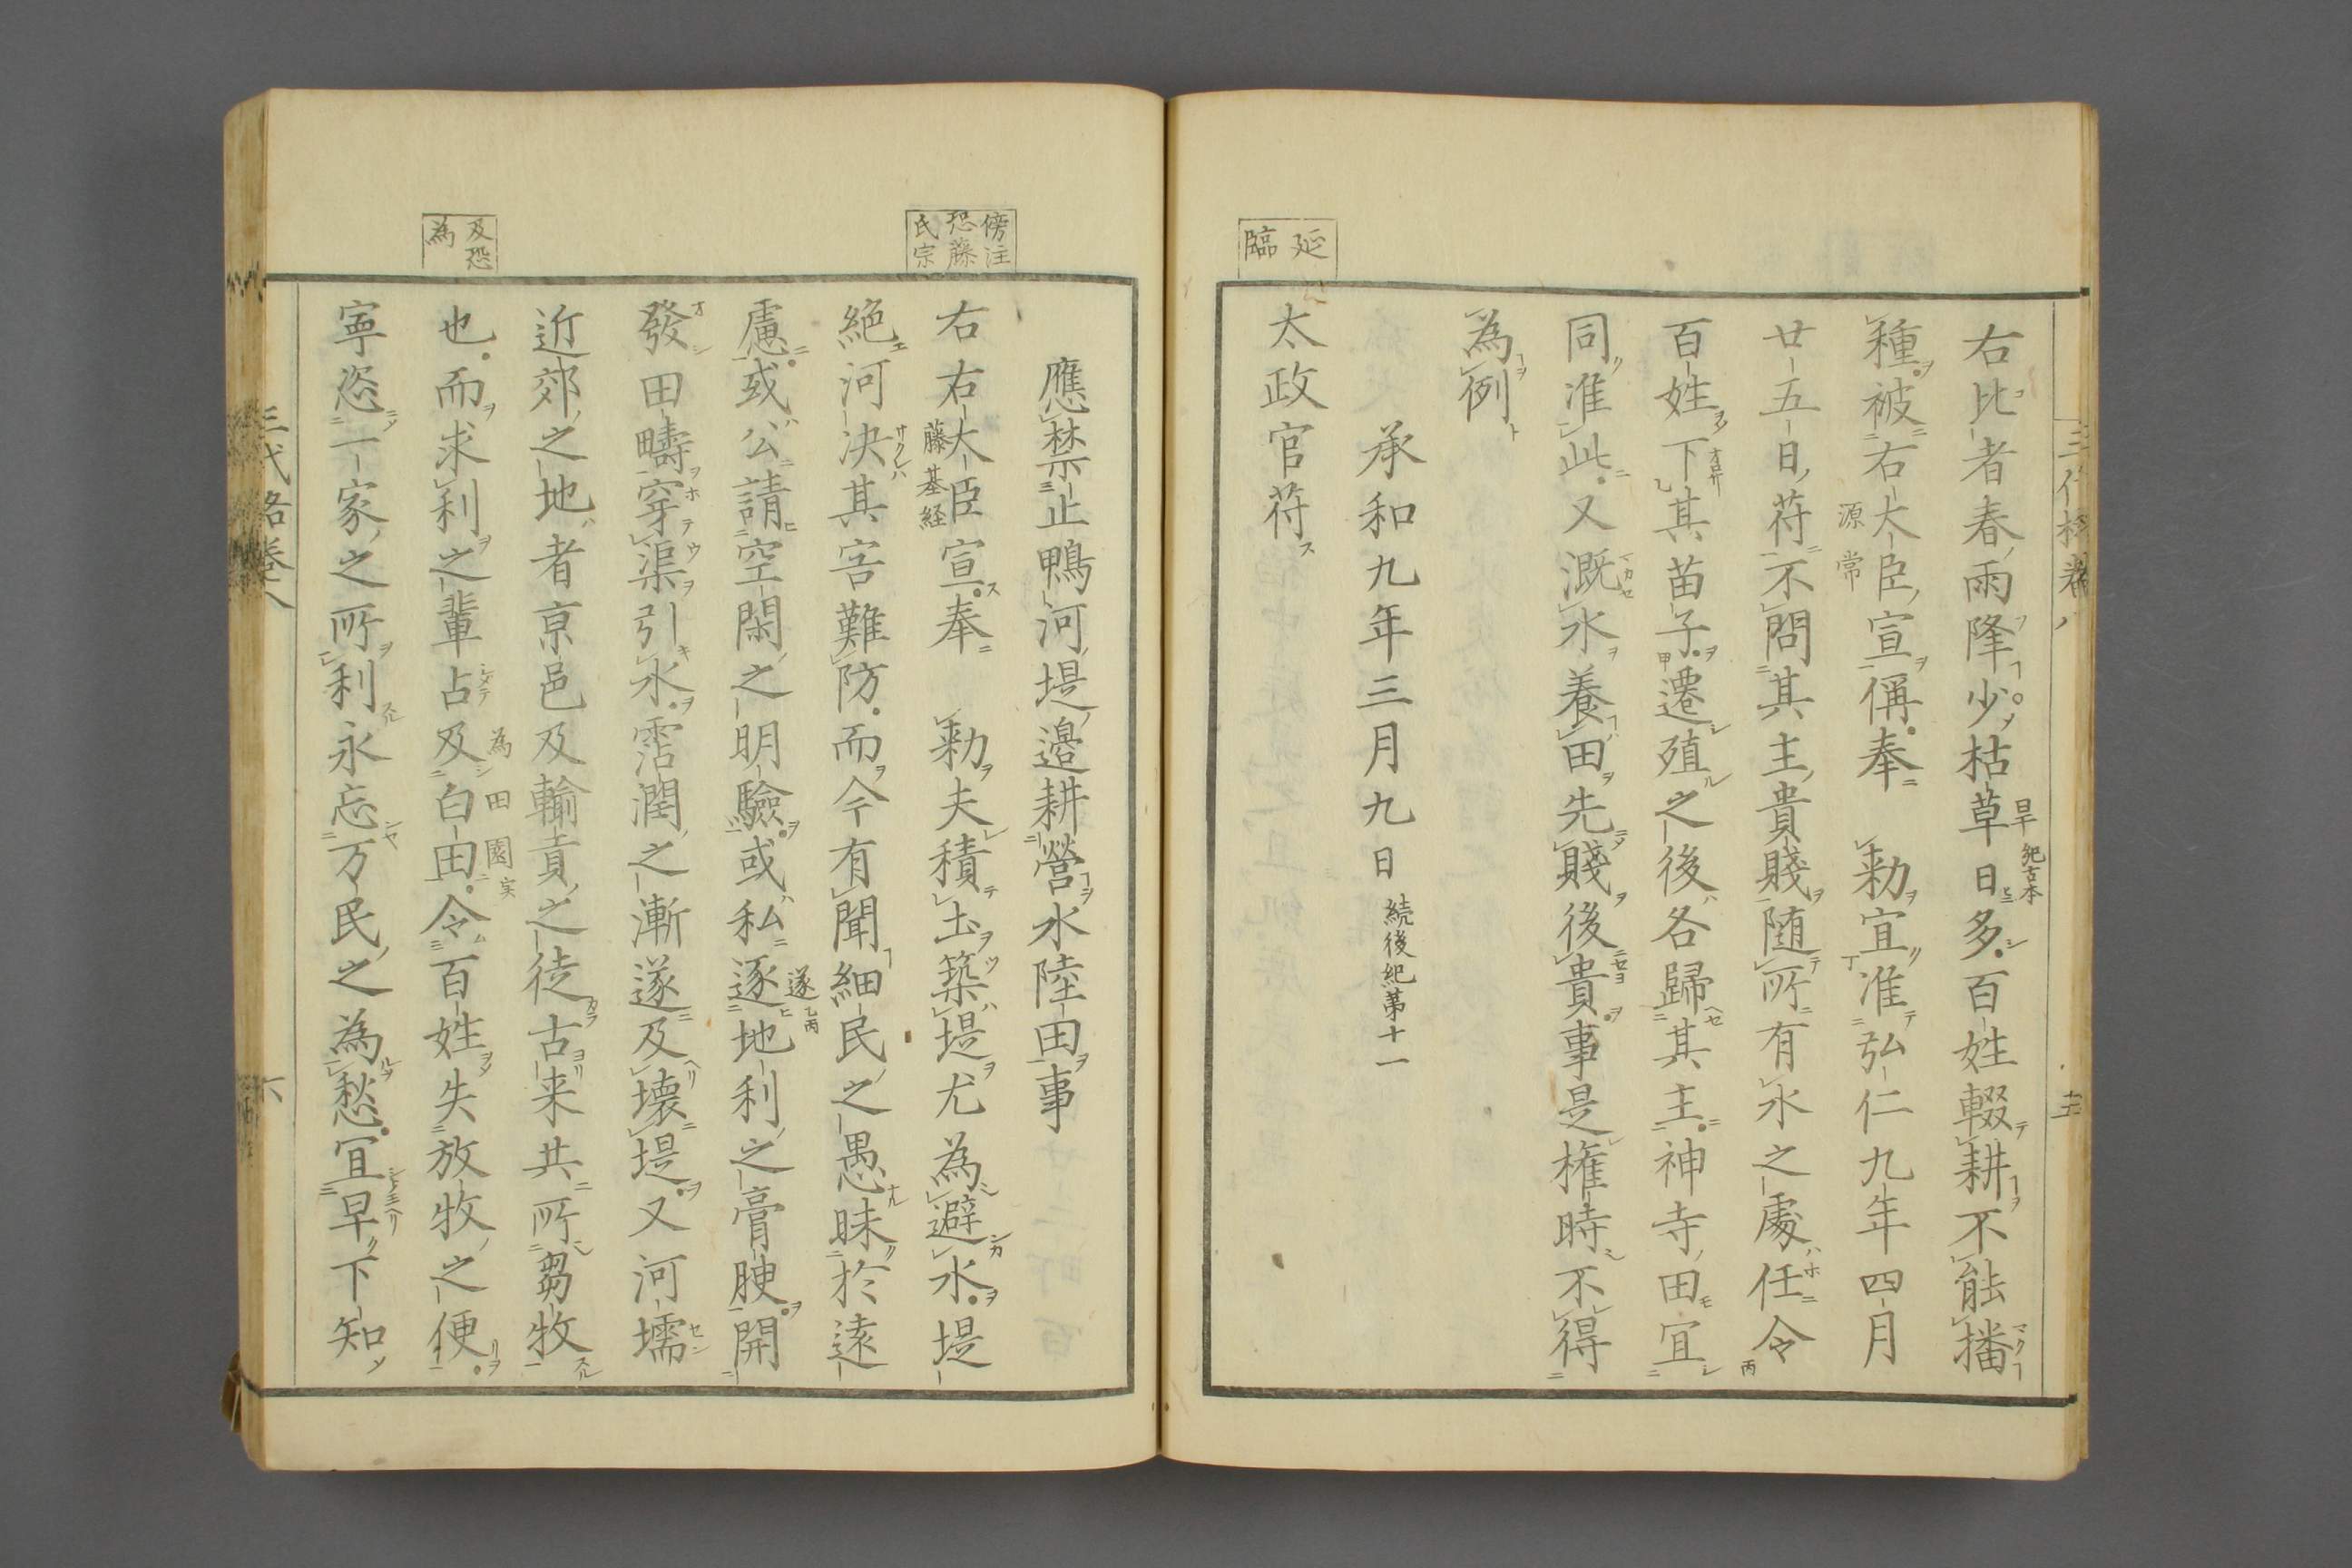 三代格卷八
五
右比者春雨降少枯草日多百姓輟耕不能播
旱
紀古本
種被右大臣宣偁奉　勅宜准弘仁九年四月
源常
廿五日符不問其主貴賤随所有水之處任令
百姓下其苗子遷殖之後各歸其主神寺田宜
同准此又漑水養田先賤後貴事是権時不得
為例
承和九年三月九日
続後紀第十一
太政官符
延
臨
應禁止鴨河堤邊耕營水陸田事
右右大臣宣奉　勅夫積土築堤尤為避水堤
藤基経
傍注
恐藤
氏宗
絶河决其害難防而今有聞細民之愚昧於遠
慮或公請空閑之明驗或私逐地利之膏腴開
遂乙丙
發田疇穿渠引水霑潤之漸遂及壊堤又河壖
近郊之地者京邑及輸貢之徒古来共所芻牧
也而求利之輩占及白田令百姓失放牧之便
為
田園実
及恐
為
寧恣一家之所利永忘万民之為愁宜早下知
三代格卷八
六